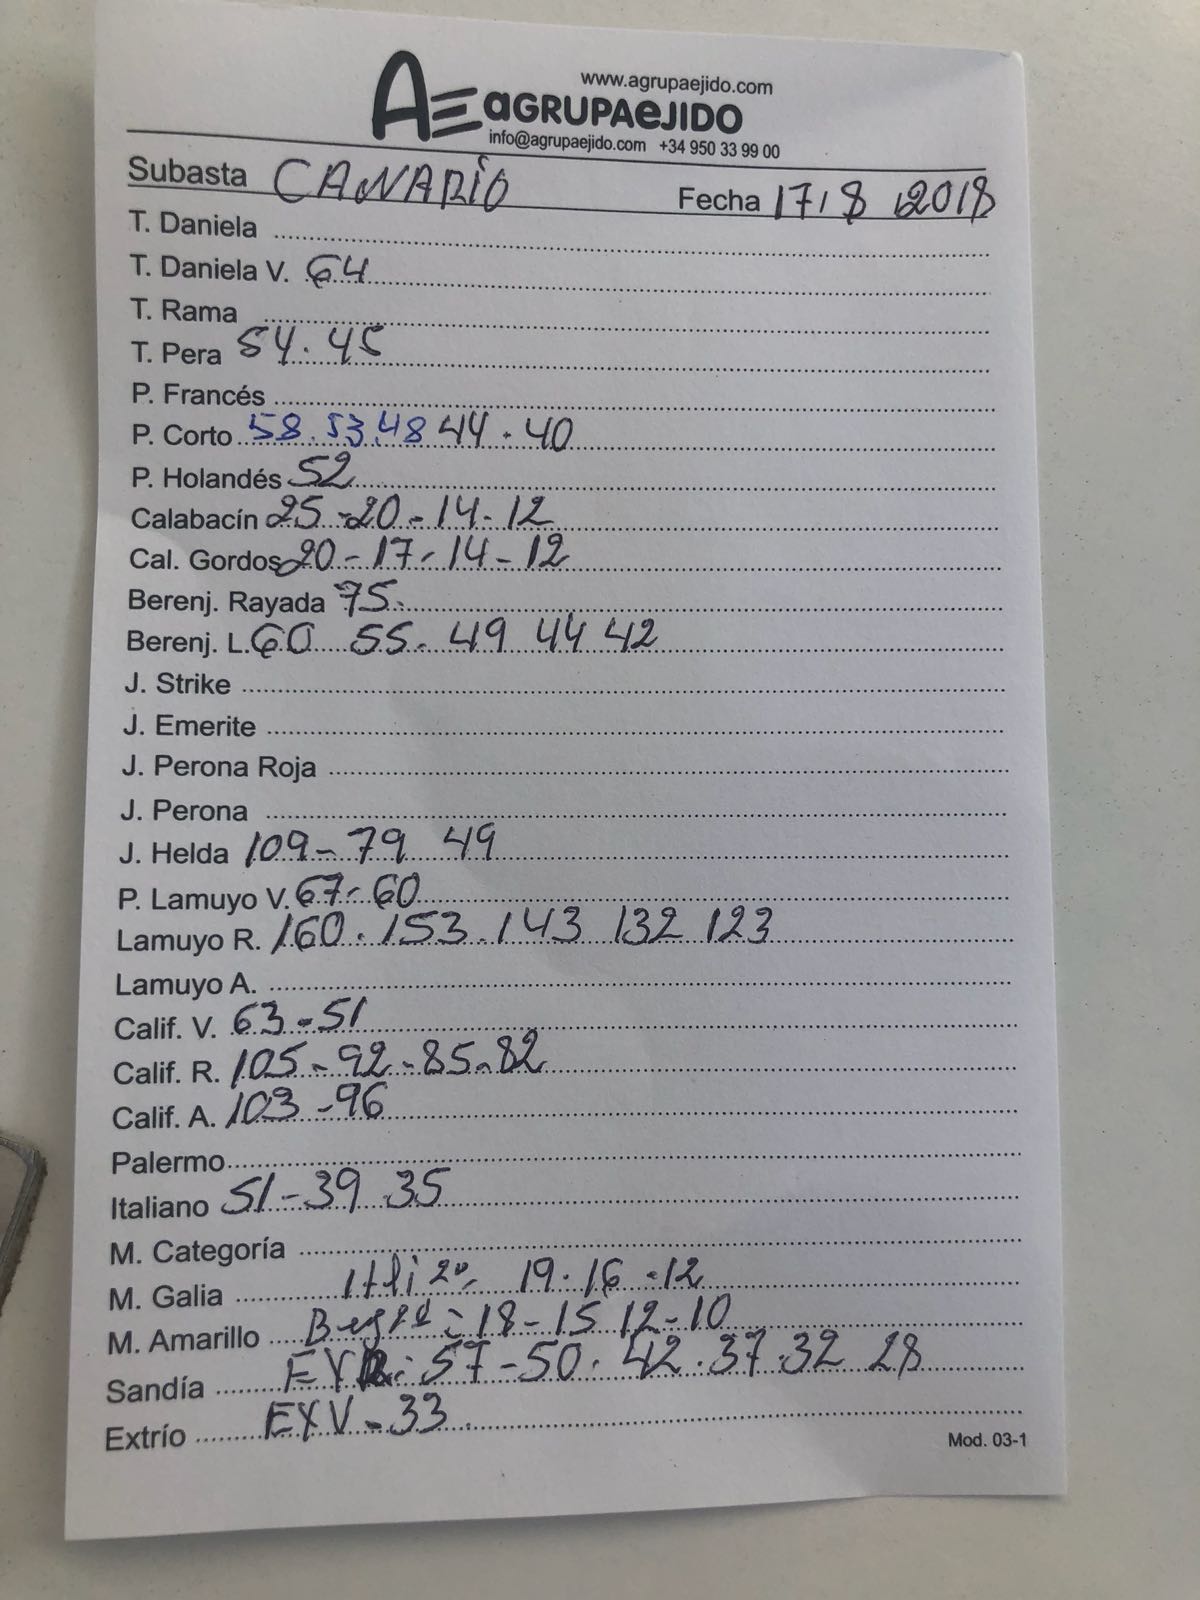 www.agrupaejido.com
AE aGRUPAeJIDO
info@agrupaejido.com +34 950 33 99 00
Subasta CANARIO Fecha 17/8 2018
T. Daniela
T. Daniela V. 64
T. Rama
T. Pera 54. 45
P. Francés
P. Corto 58. 53. 48 44. 40
P. Holandés 52
Calabacín 25-20-14-12
Cal. Gordos 20-17-14-12
Berenj. Rayada 75.
Berenj. L. 60 55. 49 44 42
J. Strike
J. Emerite
J. Perona Roja
J. Perona
J. Helda 109-79 49
P. Lamuyo V. 67-60
Lamuyo R. 160. 153. 143 132 123
Lamuyo A.
Calif. V. 63-51
Calif. R. 105-92-85-82
Calif. A. 103-96
Palermo
Italiano 51-39.35
M. Categoría
M. Galia 19.16.12
M. Amarillo 18-15 12-10
Sandía 57-50. 42. 37. 32 28
Extrío EXV-33
Mod. 03-1